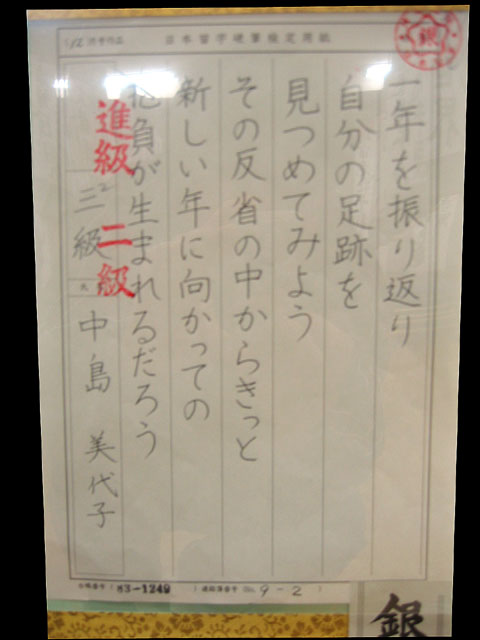 日本習字硬筆検定用紙
銀
一年を振り返り
自分の足跡を
見つめてみよう
その反省の中からきっと
新しい年に向かっての
抱負が生まれるだろう
進級 二級
三級
中島 美代子
83-1249
9-2
銀